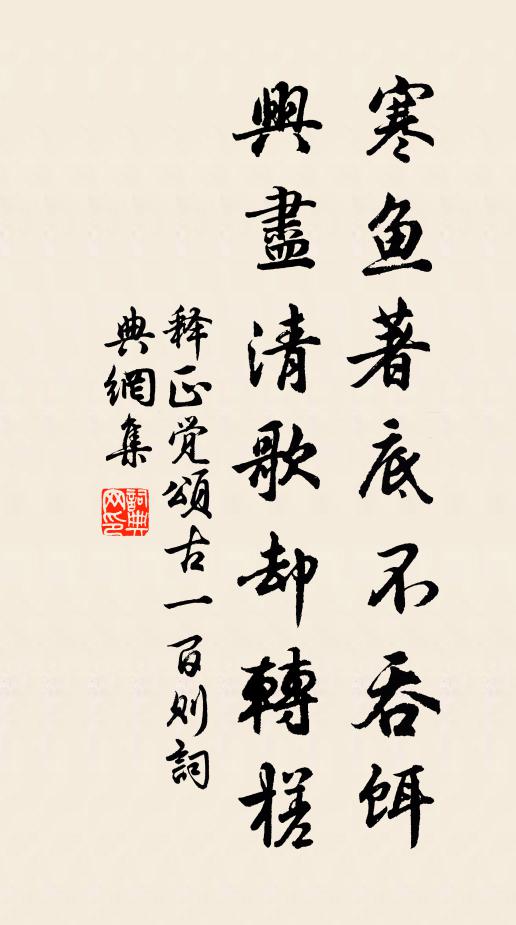 寒鱼著底不吞饵
興盡清歌却轉槎
释正觉頌古一百则詞
典網集
詞典
网印